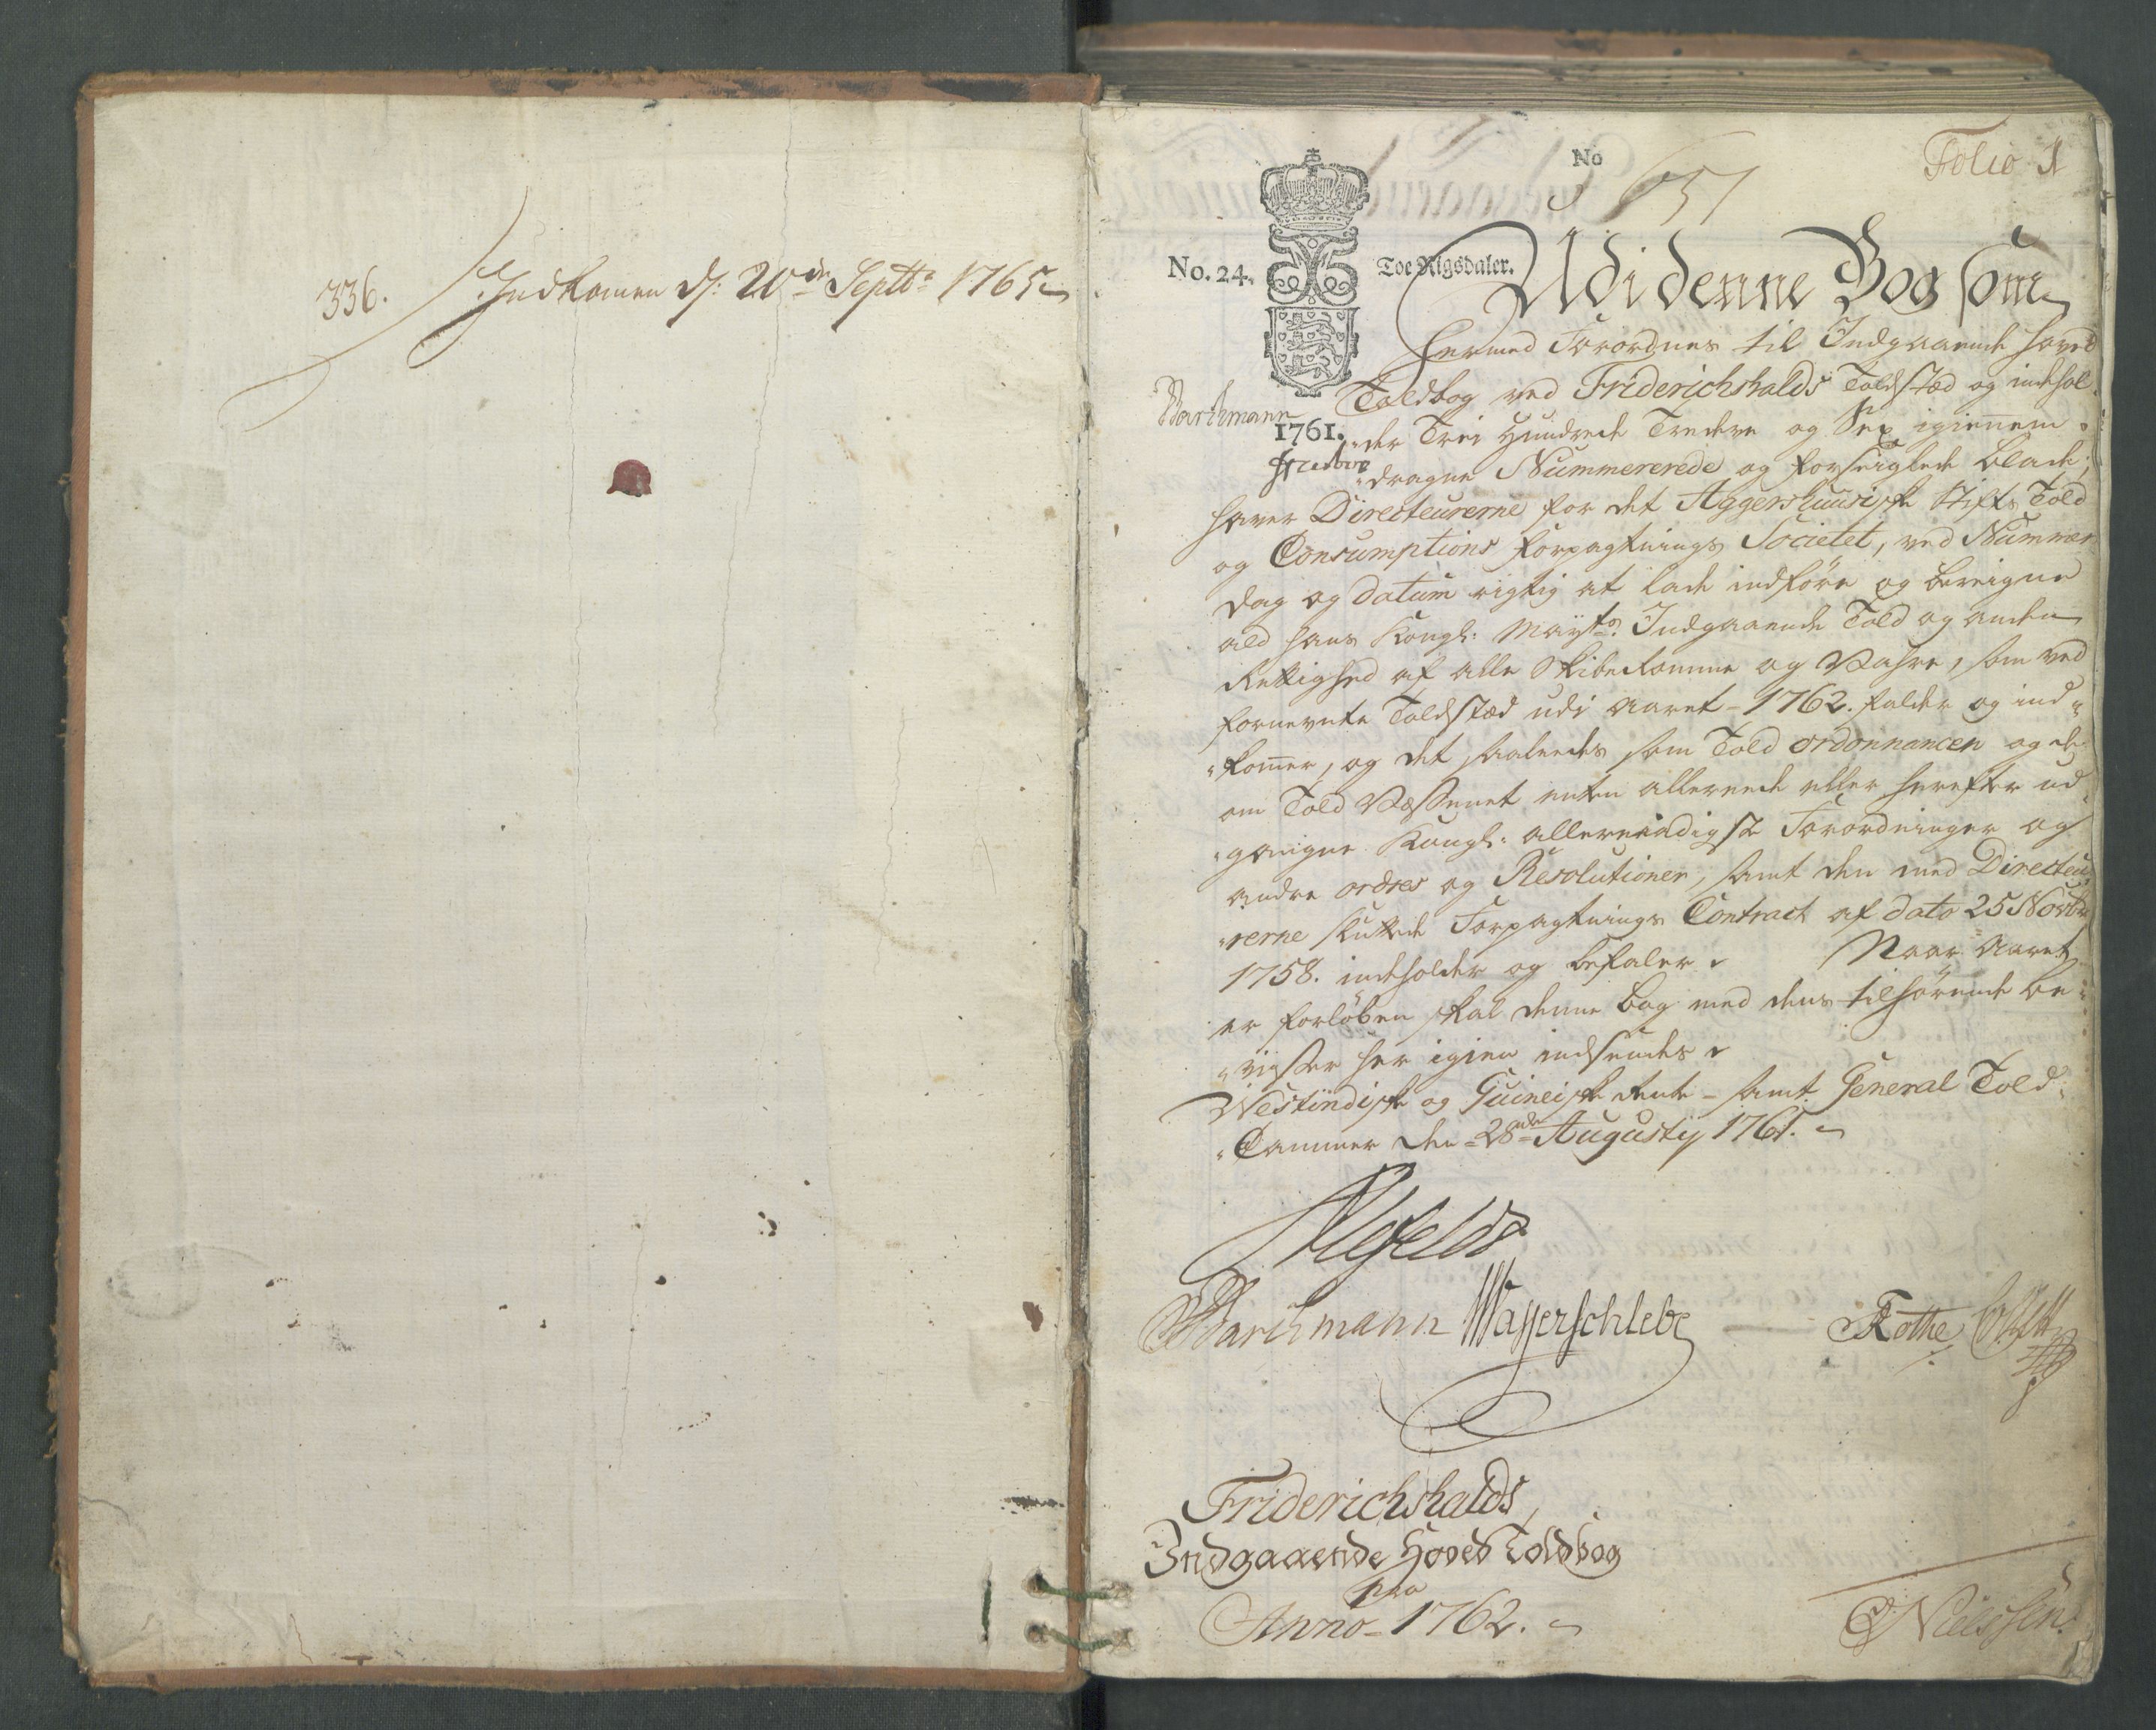 336. Indkomen d: 20de Septbr 1765
Folio 1
No 651
No. 24. Toe Rigsdaler.
Udi denne Bog som
hermed Forordnes til Indgaaende hoved
Toldbog ved Friderichshalds Toldsted og indehol-
Barchmann
1761.
der Trei Hundrede Tredeve og Sex igiennem-
dragne Nummererede og forseiglede blade,
haver Directeurerne for det Aggershuusiske Stifts Told
og Consumptions forpagtnings Societet, ved Nummer
Dag og datum rigtig at lade indføre og bereigne
ald hans Kongl: Mayts Indgaaende Told og anden
Rettighed af alle Skibe komne og Vahre, som ved
fornevnte Toldsted udi Aaret 1762. falder og ind-
komer, og det saaledes som Told ordonnancen og de
om Told Væsenet enten allerede eller herefter ud-
gangne Kongl: allernaadigste Forordninger og
andre ordres og Resolutioner, samt den med Directeu-
rerne sluttede Forpagtnings Contract af dato 25 Novbr
1758. indeholder og befaler. Naar Aaret
er forløben skal denne bog med dens tilhørende be-
viiser her igien indsendes.
Westindiske og Guineiske Rente- samt General Told-
Cammer den 28de Augusty 1761.
Alefeldt
Barchmann Wasserschlebe Rothe
Friderichshalds
Indgaaende Hoved Toldbog
pro
Anno 1762.
Nielssen